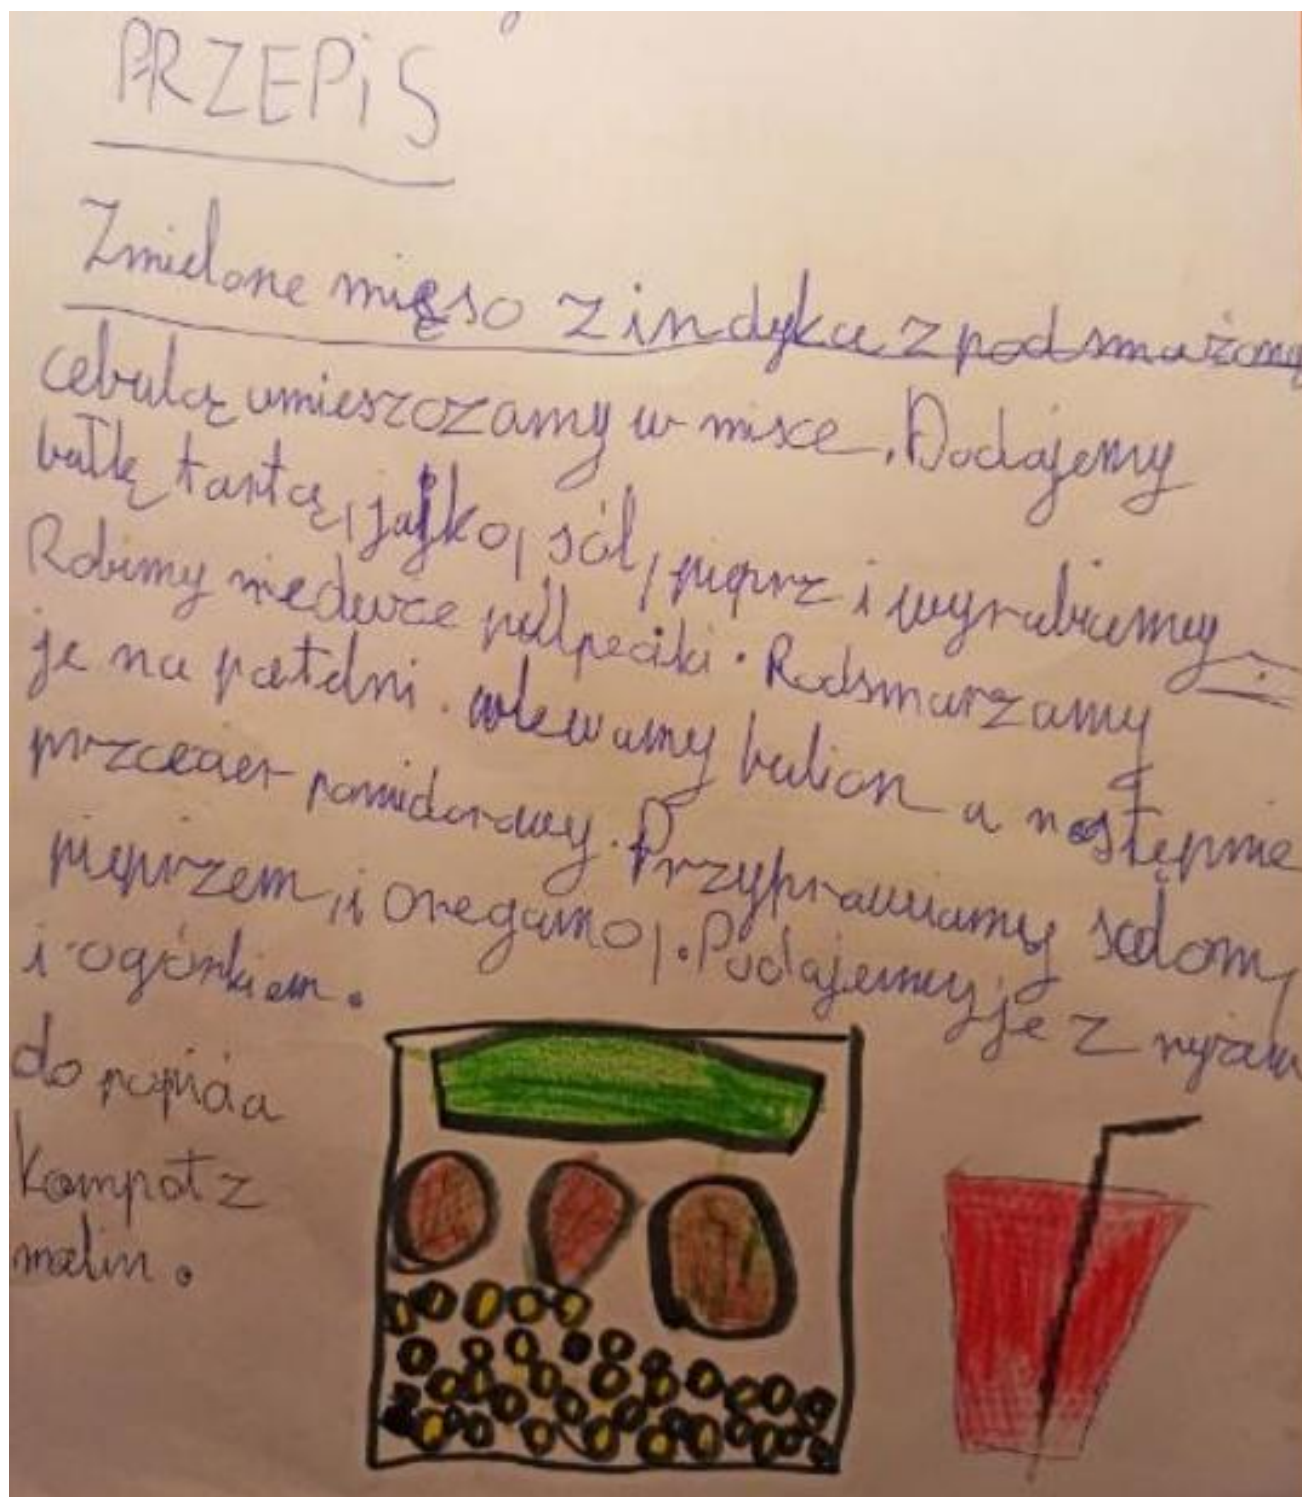 PRZEPiS
Zmielone mięso z indyka z podsmażoną
cebulą umieszczamy w misce. Dodajemy
bułkę tartą, jajko, sól, pieprz i wyrabiamy.
Robimy nieduże pulpeciki. Podsmarzamy
je na patelni. wlewamy bulion a następnie
przecier pomidorowy. Przyprawiamy solom,
pieprzem, i oregano,. Podajemy je z ryżem
i ogórkiem.
do popicia
kompot z
malin.